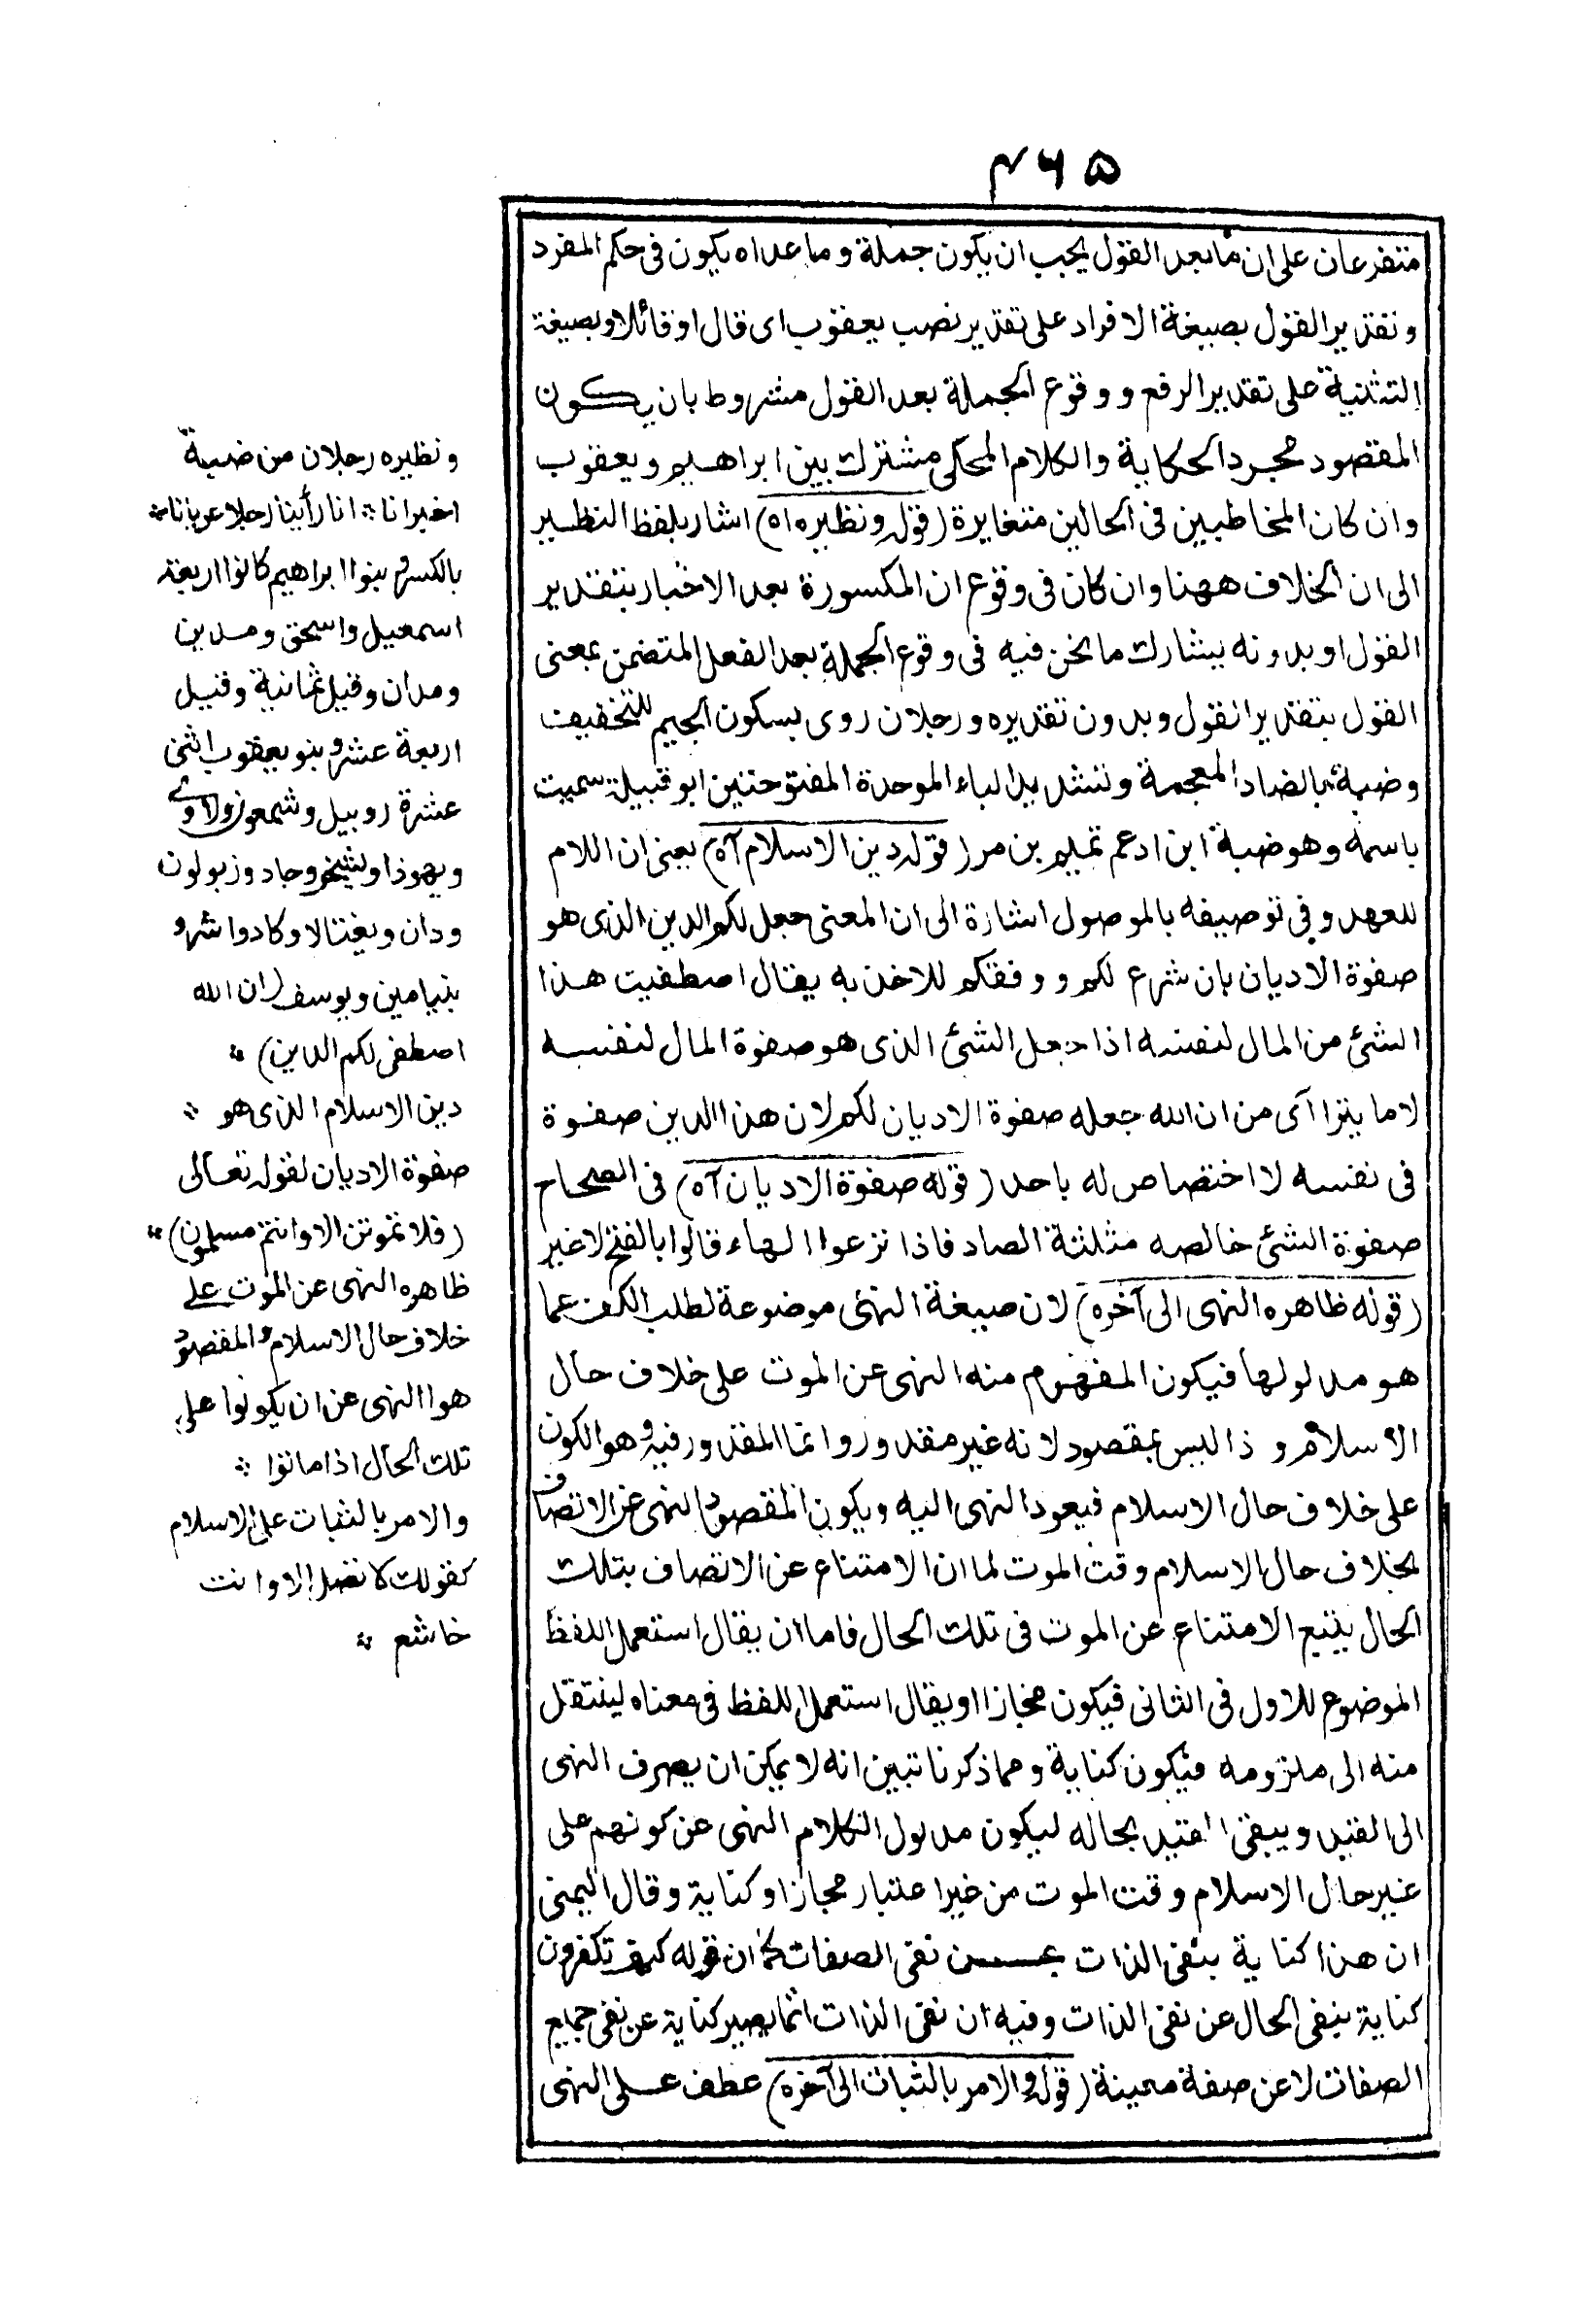 ٤٦٥
متفرعان على ان ما بعد القول يجب ان يكون جملة وما عداه يكون فى حكم المفرد
وتقدير القول بصيغة الافراد على تقدير نصب يعقوب اى قال او قائلا وبصيغة
التثنية على تقدير الرفع ووقوع الجملة بعد القول مشروط بان يكون
المقصود مجرد الحكاية والكلام المحكى مشترك بين ابراهيم ويعقوب
وان كان المخاطبين فى الحالين متغايرة (قوله ونظيره اه) اشار بلفظ النظير
الى ان الخلاف ههنا وان كان فى وقوع ان المكسورة بعد الاخبار بتقدير
القول او بدونه يشارك ما نحن فيه فى وقوع الجملة بعد الفعل المتضمن بمعنى
القول بتقدير القول وبدون تقديره ورجلان روى بسكون الجيم للتخفيف
وضبة بالضاد المعجمة وتشديد الباء الموحدة المفتوحتين ابو قبيلة سميت
باسمه وهو ضبة ابن ادعم تميم بن مر (قوله دين الاسلام آه) يعنى ان اللام
للعهد وفى توصيفه بالموصول اشارة الى ان المعنى جعل لكم الدين الذى هو
صفوة الاديان بان شرع لكم ووفقكم للاخذ به يقال اصطفيت هذا
الشئ من المال لنفسه اذا جعل الشئ الذى هو صفوة المال لنفسه
لا ما يتراآى من ان الله جعله صفوة الاديان لكم لان هذا الدين صفوة
فى نفسه لا اختصاص له باحد (قوله صفوة الاديان آه) فى الصحاح
صفوة الشئ خالصه مثلثة الصاد فاذا نزعوا الهاء قالوا بالفتح لا غير
(قوله ظاهره النهى الى آخره) لان صيغة النهى موضوعة لطلب الكف عما
هو مدلولها فيكون المفهوم منه النهى عن الموت على خلاف حال
الاسلام وذا ليس بمقصود لانه غير مقدور وانما المقدور فيه وهو الكون
على خلاف حال الاسلام فيعود النهى اليه ويكون المقصود النهى عن الاتصاف
بخلاف حال الاسلام وقت الموت لما ان الامتناع عن الاتصاف بتلك
الحال يتبع الامتناع عن الموت فى تلك الحال فاما ان يقال استعمل اللفظ
الموضوع للاول فى الثانى فيكون مجازا او يقال استعمل اللفظ فى معناه لينتقل
منه الى ملزومه فيكون كناية ومما ذكرنا تبين انه لا يمكن ان يصرف النهى
الى القيد ويبقى المقيد بحاله ليكون مدلول الكلام النهى عن كونهم على
غير حال الاسلام وقت الموت من غير اعتبار مجاز او كناية وقال اليمنى
ان هذا كناية بنفى الذات عن نفى الصفات كما ان قوله كيف تكفرون
كناية بنفى الحال عن نفى الذات وفيه ان نفى الذات انما يصير كناية عن نفى جميع
الصفات لا عن صفة معينة (قوله والامر بالثبات الى آخره) عطف على النهى
ونظيره رجلان من ضبة
اخبرانا * انا رأينا رجلا عريانا *
بالكسر وبنوا ابراهيم كانوا اربعة
اسمعيل واسحق ومدين
ومدان وقيل ثمانية وقيل
اربعة عشر وبنو يعقوب اثنى
عشرة روبيل وشمعون ولاوى
ويهوذا ويشيخر وجاد وزبولون
ودان ويفتالا وكادوا شرو
بنيامين ويوسف (ان الله
اصطفى لكم الدين) *
دين الاسلام الذى هو *
صفوة الاديان لقوله تعالى
(فلا تموتن الا وانتم مسلمون) *
ظاهره النهى عن الموت على
خلاف حال الاسلام والمقصود
هو النهى عن ان يكونوا على
تلك الحال اذا ماتوا *
والامر بالثبات على الاسلام
كقولك لا تصل الا وانت
خاشع *